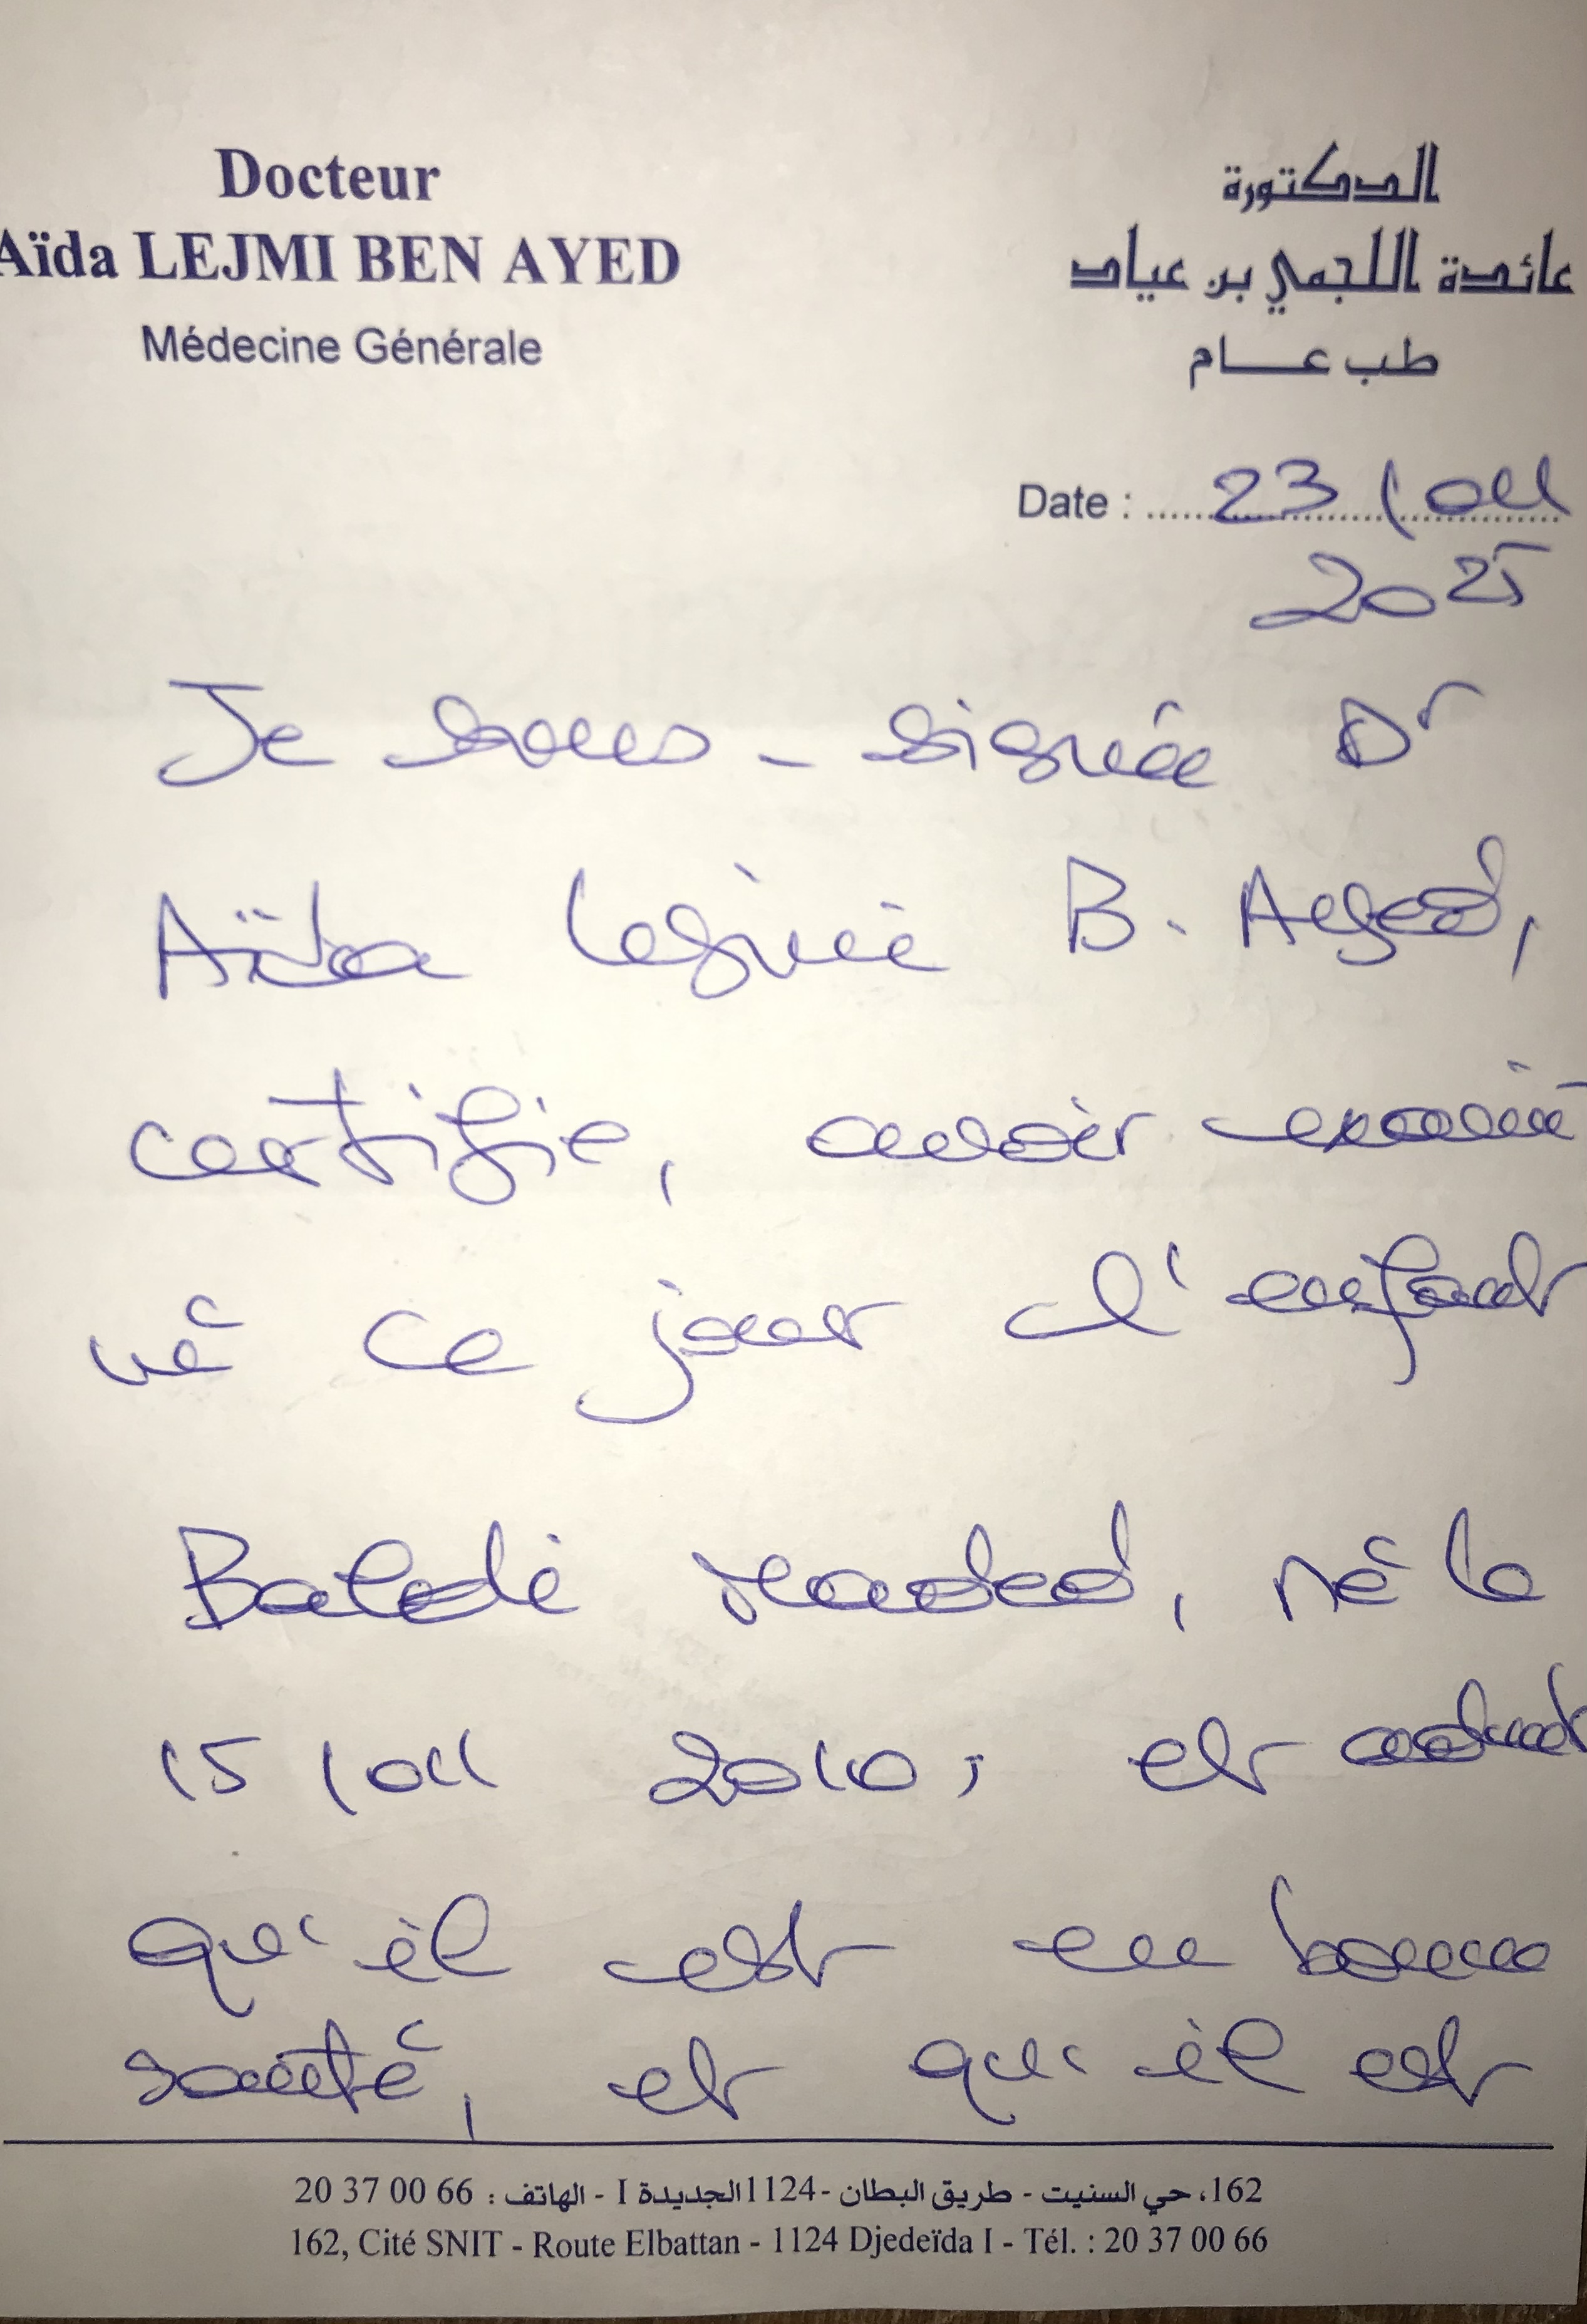 Docteur
Aïda LEJMI BEN AYED
Médecine Générale
الدكتورة
عائدة اللجمي بن عياد
طب عـــام
Date : 23/04
2025
Je sous-signée Dr
Aïda Lejmi B. Ayed,
certifie, avoir exami
né ce jour l'enfant
Baldi, né le
15/04 2010, et
qu'il est en bonne
santé, et qu'il est
162، حي السنيت - طريق البطان -1124 الجديدة I - الهاتف : 66 00 37 20
162, Cité SNIT - Route Elbattan - 1124 Djedeïda I - Tél. : 20 37 00 66